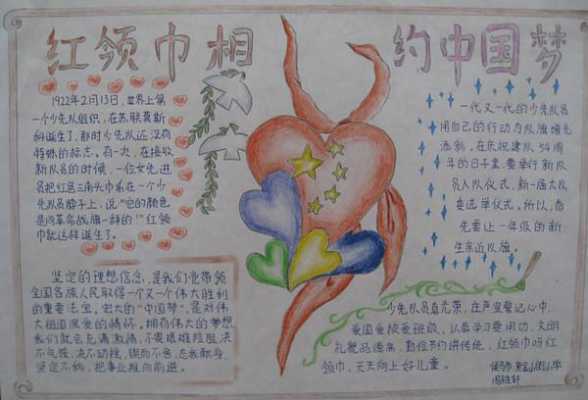 红领巾相约中国梦
1922年2月13日,世界上第
一个少先队组织,在苏联莫斯
科诞生了,那时少先队还没有
特殊的标志。有一次,在接收
新队员的时候,一位女先进
员把红色三角头巾系在一个少
先队员脖子上,说"它的颜色
是同革命战旗一样的!"红领
巾就这样诞生了。
一代又一代的少先队员
用自己的行动为队旗增光
添彩。在庆祝建队
年的日子里,要举行新队
员入队仪式,新一届大队
委选举仪式。所以,首
先要让一年级的新
生亲近队旗。
坚定的理想信念,是我们党带领
全国各族人民取得一个又一个伟大胜利
的重要法宝,宏大的"中国梦",是对伟
大祖国深爱的情怀。拥有伟大的梦想
我们就会充满激情,不畏艰难险阻,决
不气馁,决不动摇,锲而不舍,忘我献身,
坚定不移,把事业推向前进。
少先队员真光荣,在声宣誓记心中,
爱国爱校爱班级,认真学习要用功,文明
礼貌品德高,勤俭节约讲传统,红领巾呀红
领巾,天天向上好儿童。